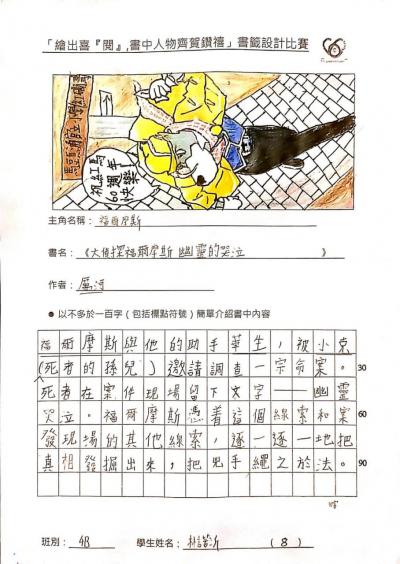 「繪出喜『閱』，書中人物齊賀鑽禧」書籤設計比賽
祝紅馬
60週年
快樂！
主角名稱：福爾摩斯
書名：《大偵探福爾摩斯 幽靈的哭泣》
作者：厲河
● 以不多於一百字（包括標點符號）簡單介紹書中內容
福爾摩斯與他的助手華生，被小克
(死者的孫兒)邀請調查一宗命案。 30
死者在案件現場留下文字——幽靈
哭泣。福爾摩斯憑着這個線索和案 60
發現場的其他線索，逐一逐一地把
真相發掘出來，把兇手繩之於法。 90
班別：4B 學生姓名：林 (8)